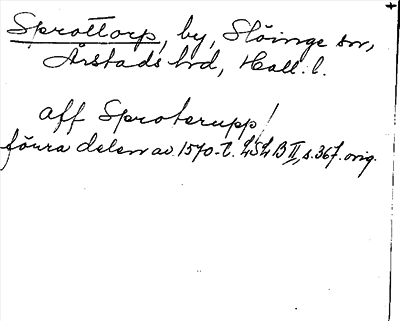 Sprottorp, by, Slöinge sn,
Årstads hd, Hall. l.
aff Sproterupp!
förra delen av 1570-t. LSL B II, s. 367. orig.